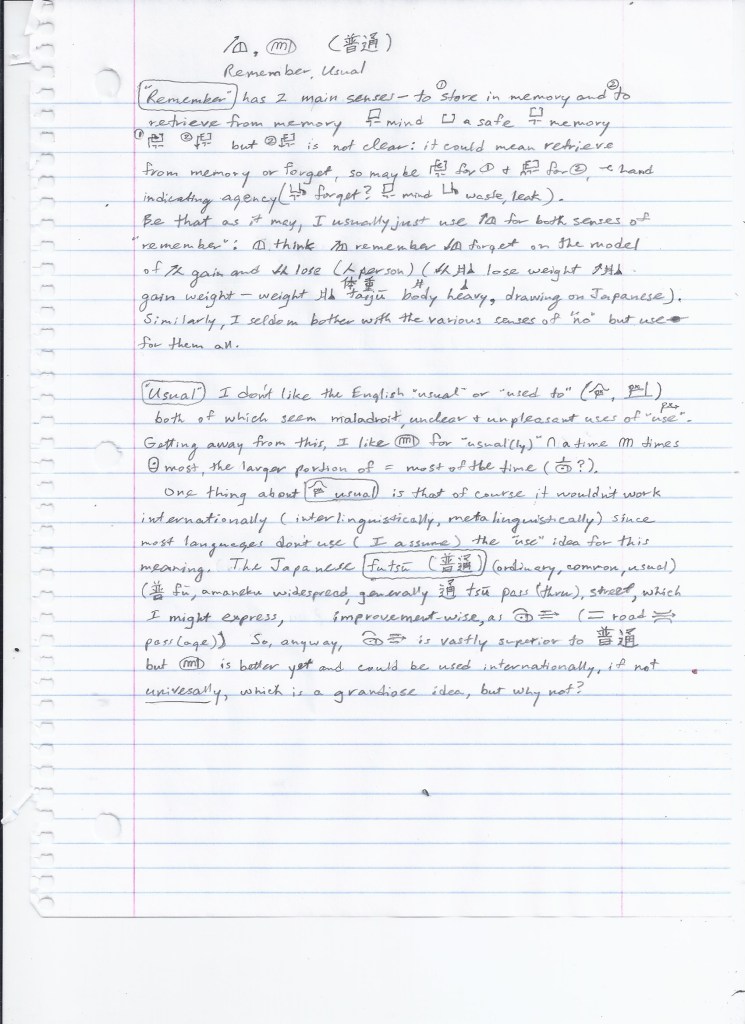 , (普通)
Remember, Usual
"Remember" has 2 main senses – to ① store in memory and ② to
retrieve from memory mind a safe memory
① ② but ② is not clear: it could mean retrieve
from memory or forget, so maybe for ① & for ②, hand
indicating agency ( forget? mind waste, leak).
Be that as it may, I usually just use for both senses of
"remember": think remember forget on the model
of gain and lose (人 person) ( lose weight
gain weight – weight 体重 taijū body heavy, drawing on Japanese).
Similarly, I seldom bother with the various senses of "no" but use
for them all.
"Usual" I don't like the English "usual" or "used to" ( , )
both of which seem maladroit, unclear & unpleasant uses of "use".
Getting away from this, I like for "usual(ly)" ∩ a time m times
most, the larger portion of = most of the time ( ?).
One thing about usual is that of course it wouldn't work
internationally (interlinguistically, metalinguistically) since
most languages don't use (I assume) the "use" idea for this
meaning. The Japanese futsū (普通) (ordinary, common, usual)
(普 fū, amaneku widespread, generally 通 tsū pass (thru), street, which
I might express, improvement-wise, as (= road
pass(age)) So, anyway, is vastly superior to 普通
but is better yet and could be used internationally, if not
univesally, which is a grandiose idea, but why not?